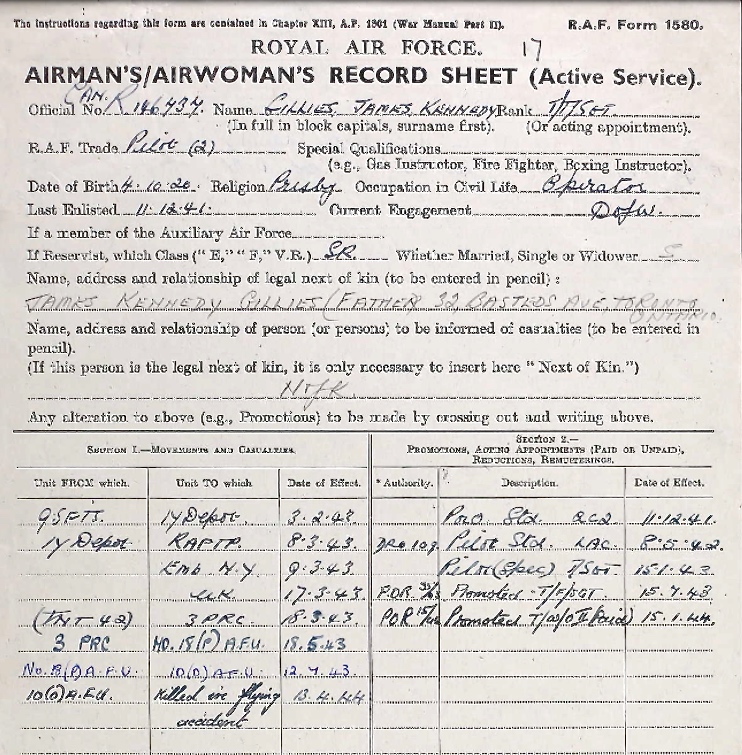 The instructions regarding this form are contained in Chapter XIII, A.P. 1301 (War Manual Part II). R.A.F. Form 1580.
ROYAL AIR FORCE. 17
AIRMAN'S/AIRWOMAN'S RECORD SHEET (Active Service).
CAN.
Official No. R 146737 Name GILLIES, JAMES, KENNEDY Rank T/SGT
(In full in block capitals, surname first). (Or acting appointment).
R.A.F. Trade Pilot (2) Special Qualifications
(e.g., Gas Instructor, Fire Fighter, Boxing Instructor).
Date of Birth 4.10.20. Religion Presby. Occupation in Civil Life Operator
Last Enlisted 11.12.41. Current Engagement DofW.
If a member of the Auxiliary Air Force
If Reservist, which Class ("E," "F," V.R.) SR. Whether Married, Single or Widower S
Name, address and relationship of legal next of kin (to be entered in pencil) :
JAMES KENNEDY GILLIES (FATHER 32, BASTEDO AVE, TORONTO
ONTARIO.
Name, address and relationship of person (or persons) to be informed of casualties (to be entered in
pencil).
(If this person is the legal next of kin, it is only necessary to insert here "Next of Kin.")
NofK.
Any alteration to above (e.g., Promotions) to be made by crossing out and writing above.
SECTION 1.—MOVEMENTS AND CASUALTIES. SECTION 2.—
PROMOTIONS, ACTING APPOINTMENTS (PAID OR UNPAID),
REDUCTIONS, REMUSTERINGS.
Unit FROM which. Unit TO which Date of Effect. * Authority. Description. Date of Effect.
9 SFTS. 1Y Depot. 3.2.43 Prov. Std. AC2 11.12.41.
1Y Depot RAFTP. 8.3.43. DRO 109 Pilot Std. LAC. 8.5.42.
Emb N.Y 9.3.43. Pilot (Spec) T/SGT 15.1.43
UK 17.3.43 P.O.R. Promoted T/F/SGT 15.7.43
(INT 42) 3 PRC 18.3.43. POR 15/44 Promoted T/W/O II (Paid) 15.1.44.
3 PRC NO. 18 (P) A.F.U. 18.5.43
No. 18 (P) A.F.U. 10(O) AFU. 12.7.43.
10(O) A.F.U. Killed in flying 13.4.44
accident